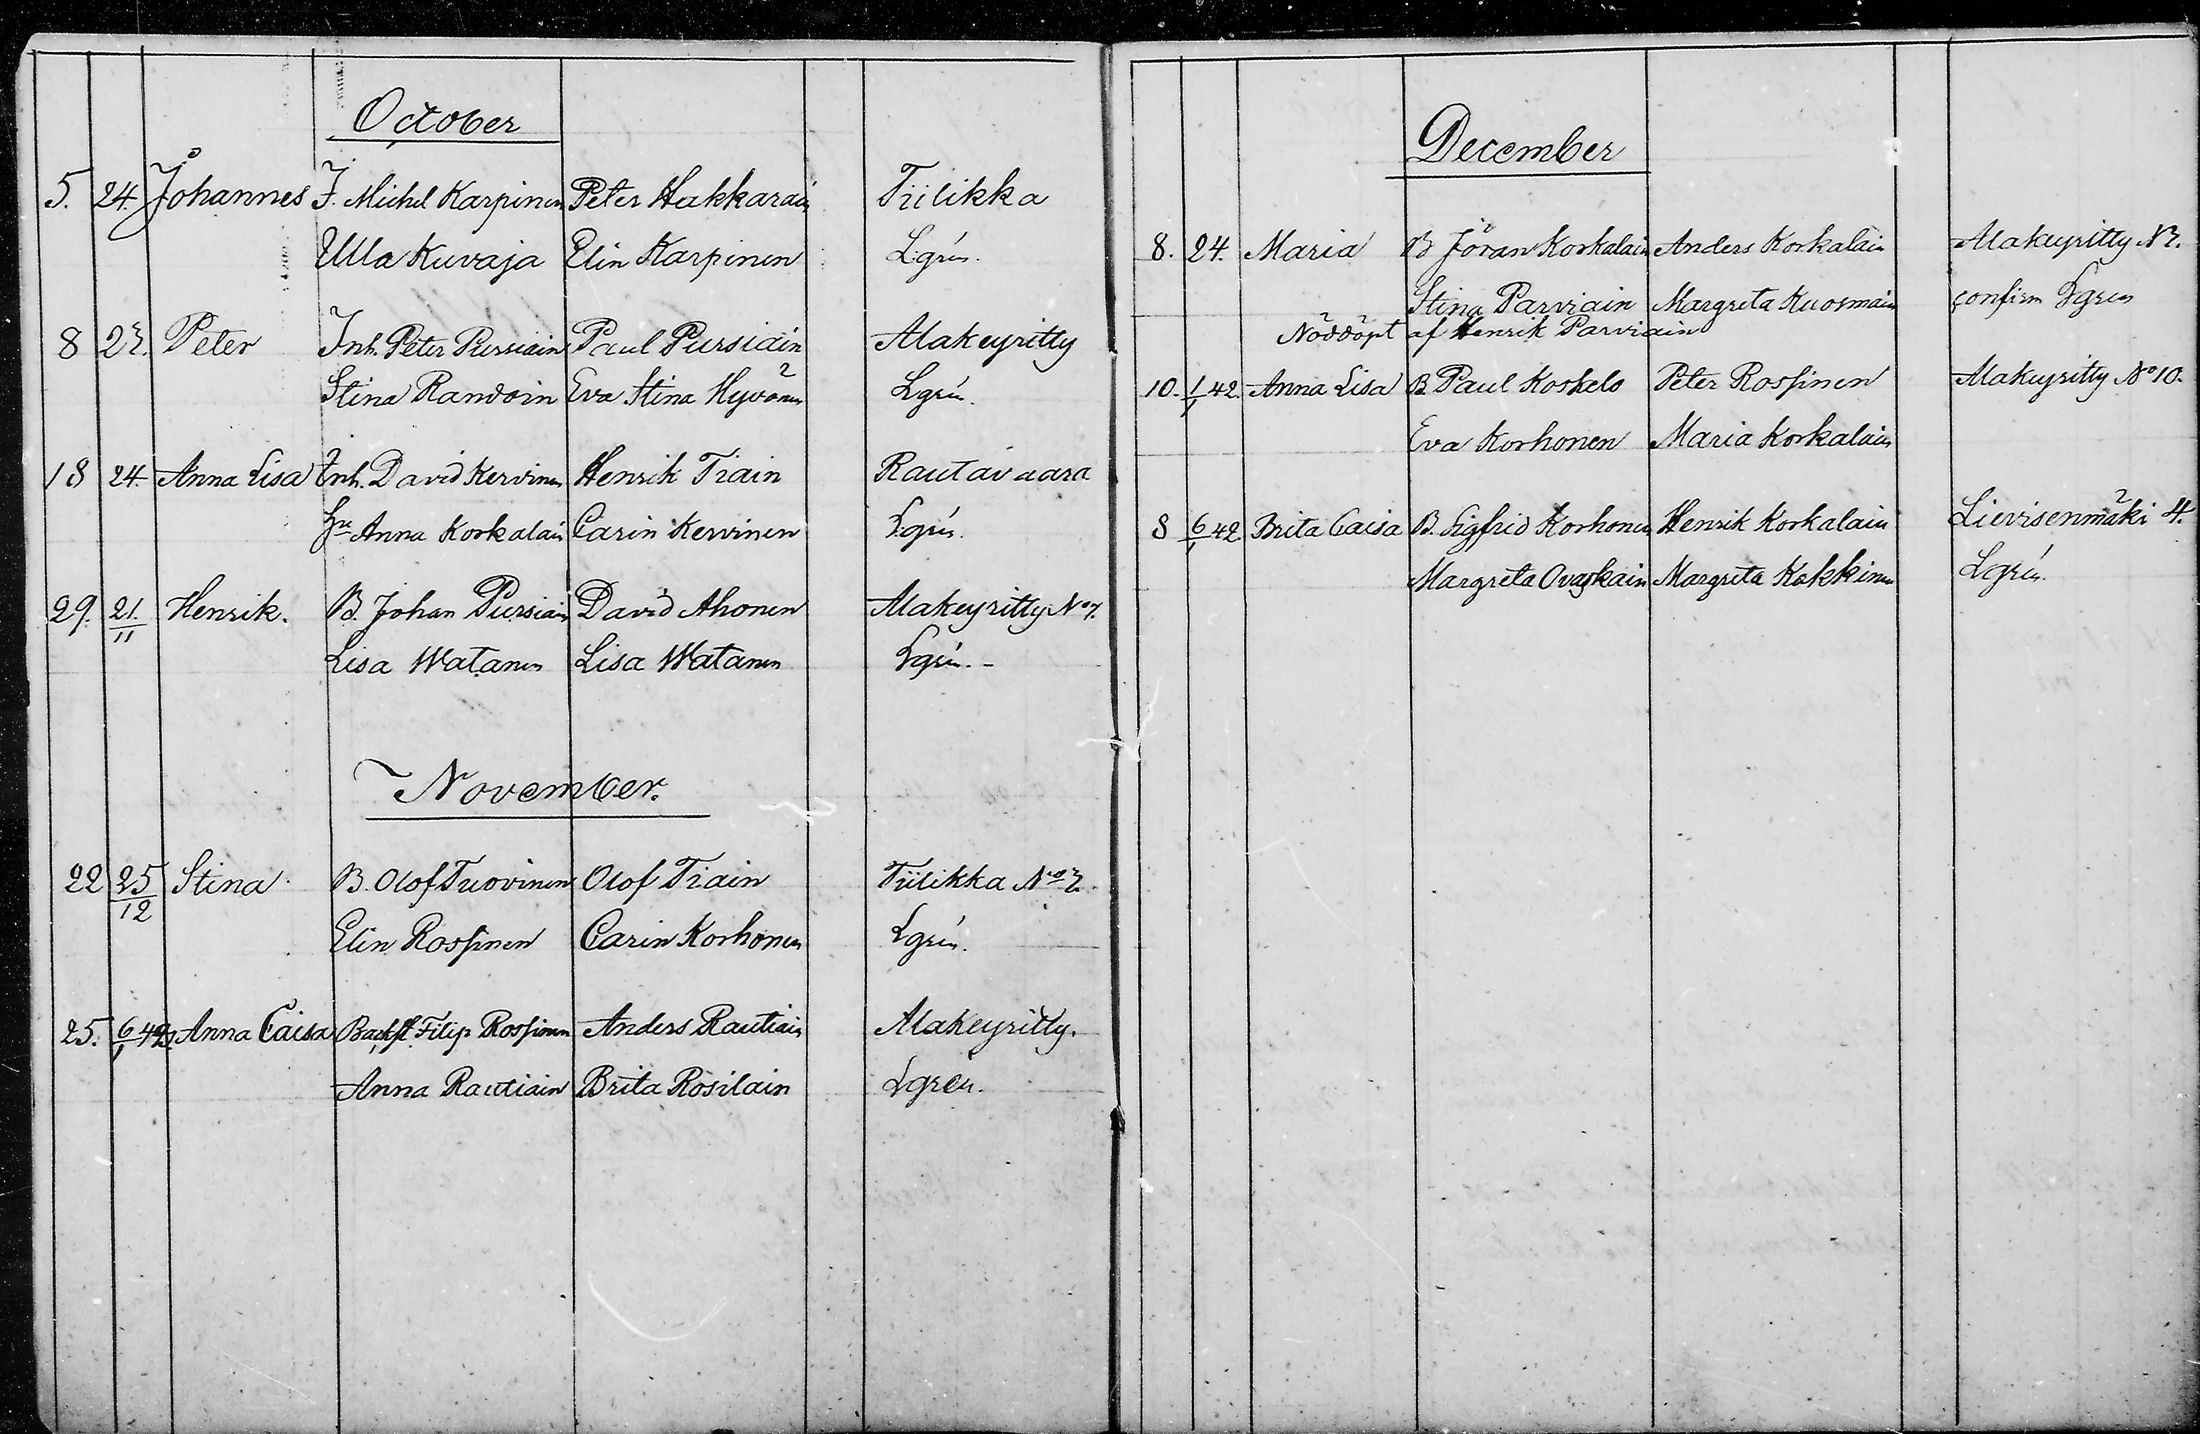 October
5. 24. Johannes J. Michel Karpinen Peter Hakkarain Tiilikka
Ulla Kuvaja Elin Karpinen Lgrén.
8 Peter Inh. Peter Pursiain Paul Pursiain Alakeyritty
Stina Randoin Eva Stina Hyvönen Lgrén.
18 24. Anna Lisa Inh. David Kervinen Henrik Tiain Rautavaara
Hu Anna Korkalain Carin Kervinen Lgrén.
29. 21/11 Henrik. B. Johan Pursiain David Ahonen Alakeyritty No 7.
Lisa Watanen Lisa Watanen Lgrén. -
November.
22 25/12 Stina B. Olof Tuovinen Olof Tiain Tiilikka No
Elin Rossinen Carin Korhonen Lgrén.
25. 6/1 42. Anna Caisa Backst Filip Rossinen Anders Rautiain Alakeyritty.
Anna Rautiain Brita Rosilain Lgrén.
December
8. 24. Maria B Jöran Korkalain Anders Korkalain Alakeyritty
Stina Parviain Margreta Kuosmain confirm Lgren
Nöddöpt af Henrik Parviain
10. 1/1 42. Anna Lisa B. Paul Koskelo Peter Rossinen Alakeyritty No 10.
Eva Korhonen Maria Korkalain
8 6/1 42. Brita Caisa B. Sigfrid Korhonen Henrik Korkalain Lievisenmäki 4.
Margreta Ovaskain Margreta Kakkinen Lgrén.